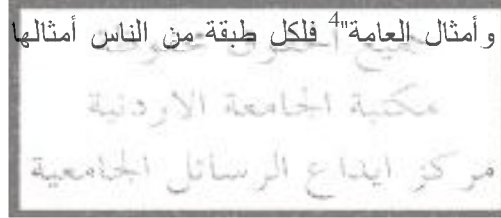 وأمثال العامة"4 فلكل طبقة من الناس أمثالها
جميع الحقوق محفوظة
مكتبة الجامعة الاردنية
مركز ايداع الرسائل الجامعية